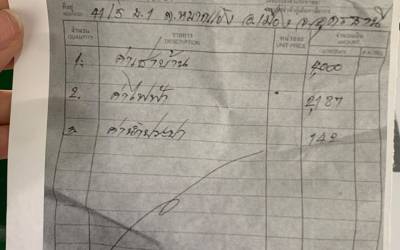 ที่อยู่ 44/5 ม.1 ต.หมากแข้ง อ.เมือง จ.อุดรธานี
จำนวน รายการ หน่วยละ จำนวนเงิน
QUANTITY DESCRIPTION UNIT PRICE AMOUNT
1. ค่าเช่าบ้าน 4,000
2. ค่าไฟฟ้า 2,187
3. ค่าน้ำประปา 142